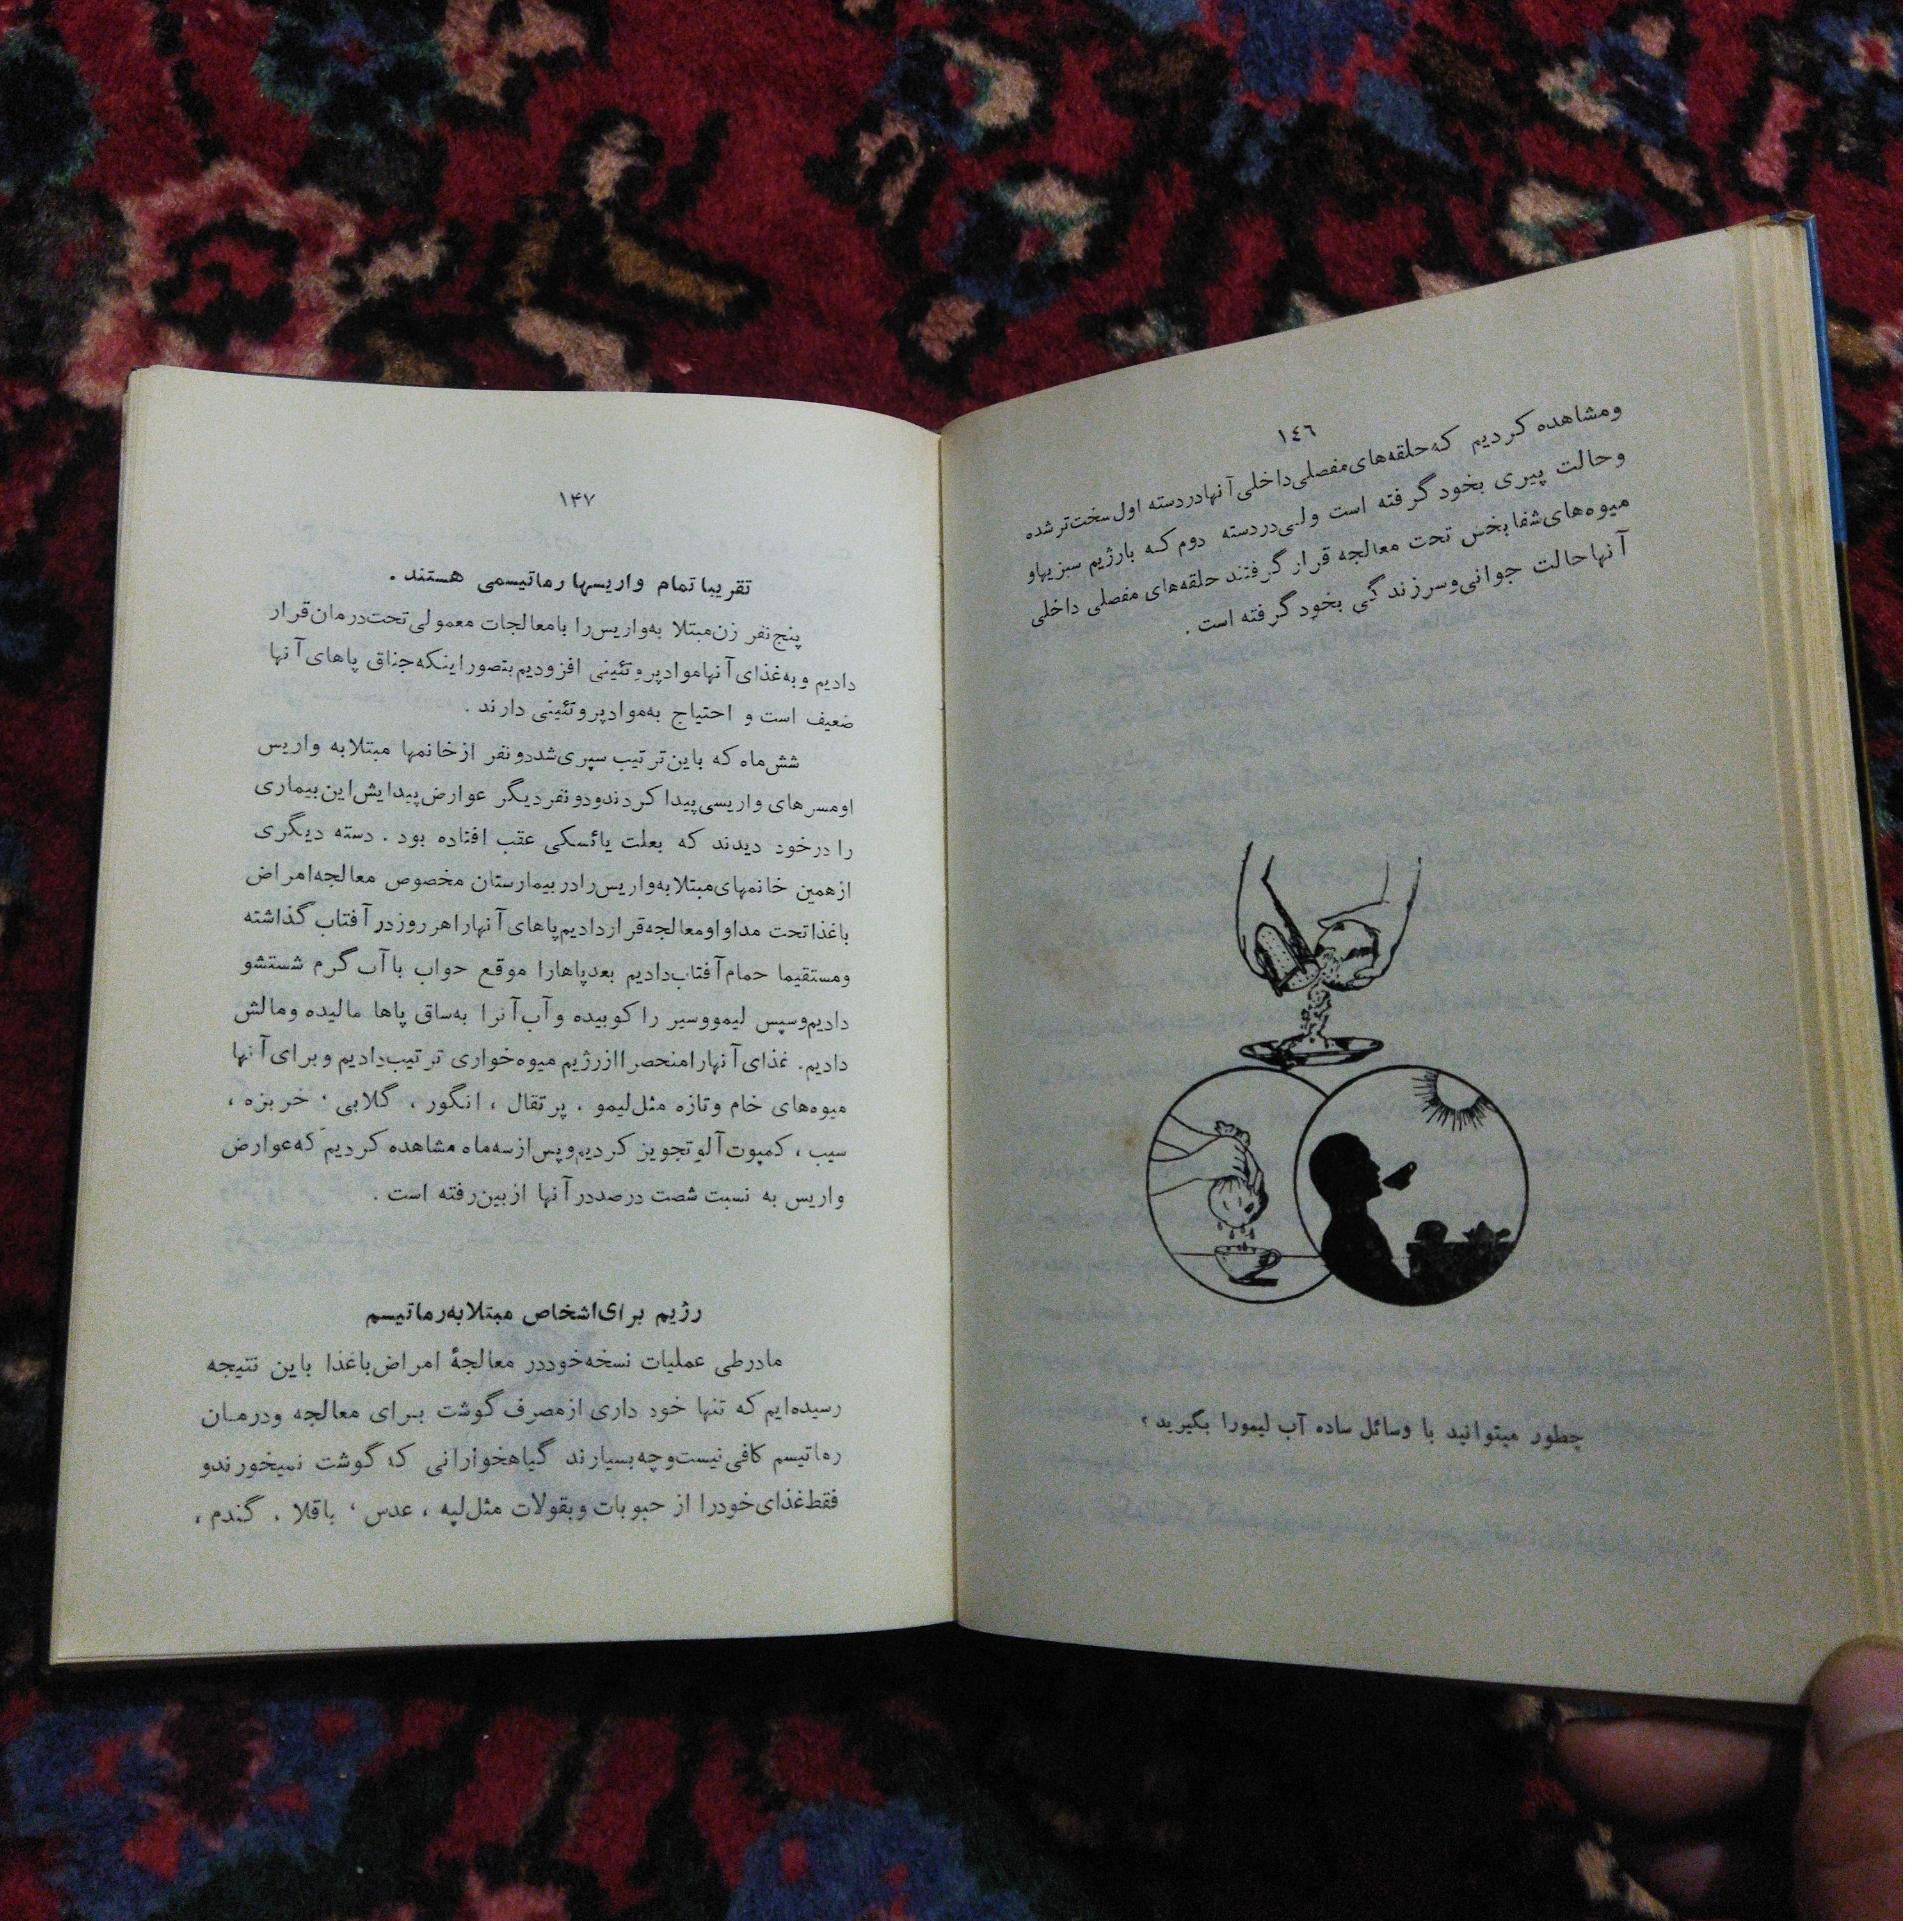 ١٤٦
ومشاهده کردیم که حلقه‌های مفصلی داخلی آنها در دسته اول سخت‌تر شده
وحالت پیری بخود گرفته است ولی در دسته دوم که بارژیم سبزیها و
میوه‌های شفا بخش تحت معالجه قرار گرفتند حلقه‌های مفصلی داخلی
آنها حالت جوانی و سرزندگی بخود گرفته است .
چطور میتوانید با وسائل ساده آب لیمورا بگیرید ؟
۱۴۷
تقریبا تمام واریسها رماتیسمی هستند .
پنج نفر زن مبتلا به واریس را با معالجات معمولی تحت درمان قرار
دادیم و به غذای آنها مواد پروتئینی افزودیم بتصور اینکه جناق پاهای آنها
ضعیف است و احتیاج به مواد پروتئینی دارند .
شش ماه که باین ترتیب سپری شد دو نفر از خانمها مبتلا به واریس
اومسرهای واریسی پیدا کردند و دو نفر دیگر عوارض پیدایش این بیماری
را در خود دیدند که بعلت یائسگی عقب افتاده بود . دسته دیگری
از همین خانمهای مبتلا به واریس را در بیمارستان مخصوص معالجه امراض
با غذا تحت مداوا و معالجه قرار دادیم پاهای آنها را هر روز در آفتاب گذاشته
ومستقیما حمام آفتاب دادیم بعد پاها را موقع خواب با آب گرم شستشو
دادیم و سپس لیمو و سیر را کوبیده و آب آنرا به ساق پاها مالیده و مالش
دادیم . غذای آنها را منحصرا از رژیم میوه خواری ترتیب دادیم و برای آنها
میوه‌های خام وتازه مثل لیمو ، پرتقال ، انگور ، گلابی ، خربزه ،
سیب ، کمپوت آلو تجویز کردیم و پس از سه ماه مشاهده کردیم که عوارض
واریس به نسبت شصت درصد در آنها از بین رفته است .
رژیم برای اشخاص مبتلا به رماتیسم
ما در طی عملیات نسخه خود در معالجهٔ امراض با غذا باین نتیجه
رسیده‌ایم که تنها خود داری از مصرف گوشت برای معالجه و درمان
رماتیسم کافی نیست و چه بسیارند گیاهخوارانی که گوشت نمیخورند و
فقط غذای خود را از حبوبات و بقولات مثل لپه ، عدس ، باقلا ، گندم ،